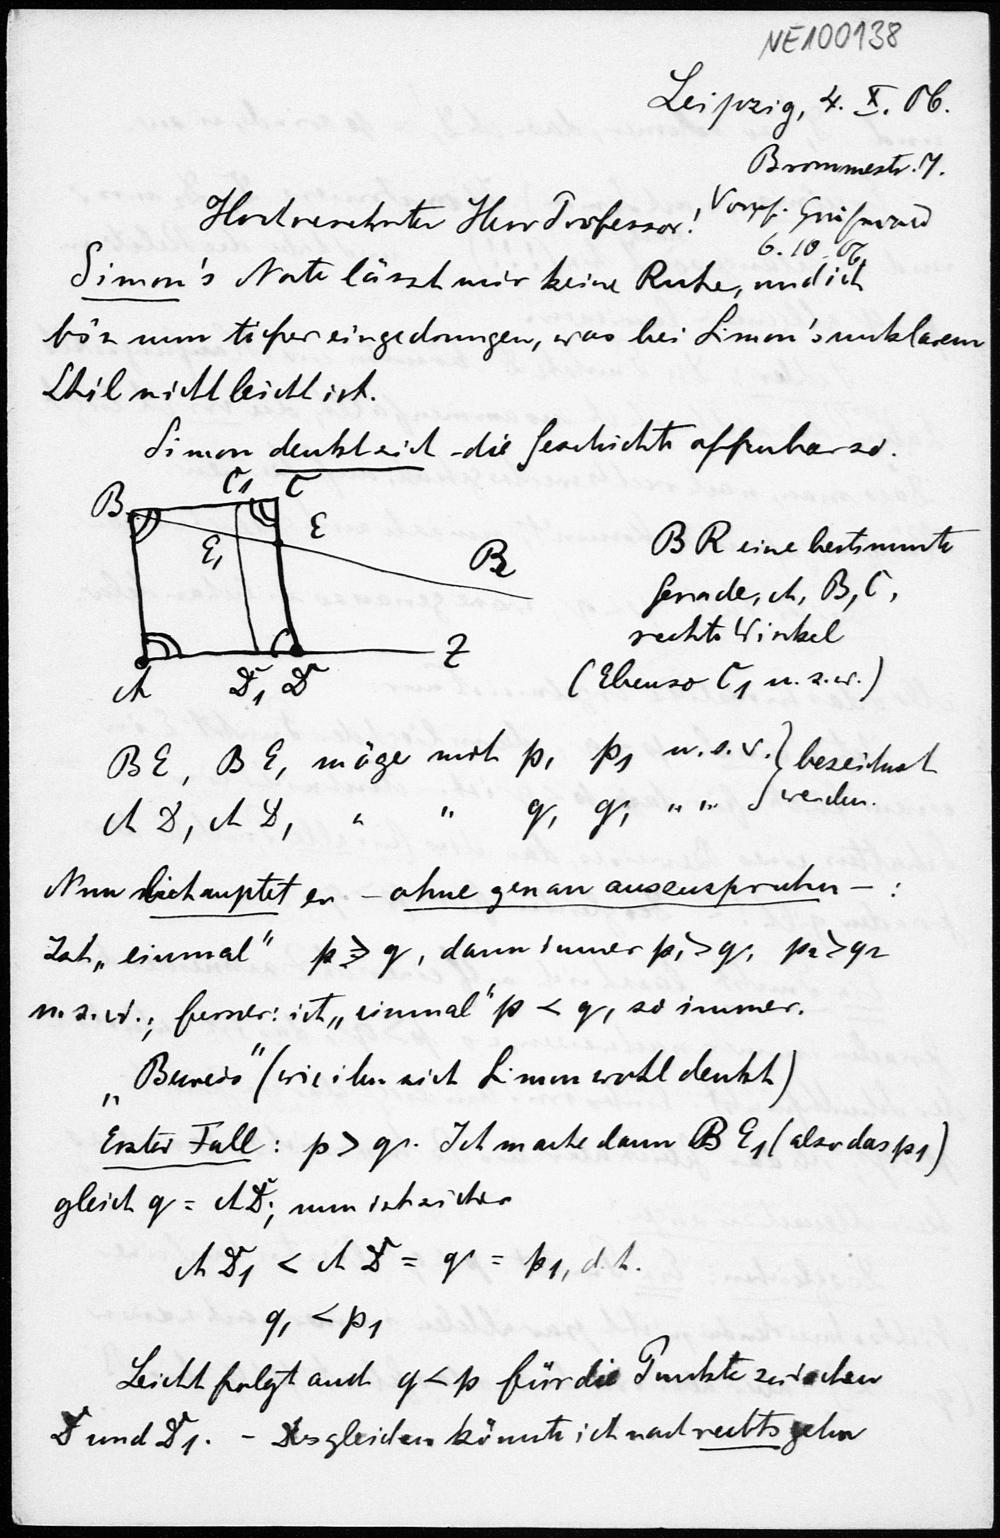 NE100138
Leipzig, 4. X. 06.
Brommestr. 7.
Hochverehrter Herr Professor!
Greifswald
6. 10. 06.
Simon's Note lässt mir keine Ruhe, und ich
bin nun tiefer eingedrungen, was bei Simon's unklarem
Stil nicht leicht ist.
Simon denkt sich die Geschichte offenbar so.
B C1 C
E1 E
R
A D1 D Z
B R eine bestimmte
Gerade, A, B, C,
rechte Winkel
(Ebenso C1 u. s. w.)
BE, BE, möge mit p, p1 u. s. w. } bezeichnet
A D, A D, " " q, q, " " } werden.
Nun behauptet er – ohne genau auszusprechen – :
Ist „einmal" p > q, dann immer p1 > q1 p2 > q2
u. s. w.; ferner: ist „einmal" p < q, so immer.
„Beweis" (wie ihn sich Simon wohl denkt)
Erster Fall: p > q. Ich mache dann B E1 (also das p1)
gleich q = A D; nun ist sicher
A D1 < A D = q = p1, d. h.
q1 < p1
Leicht folgt auch q < p für die Punkte zwischen
D und D1. – Desgleichen könnte ich nach rechts gehn